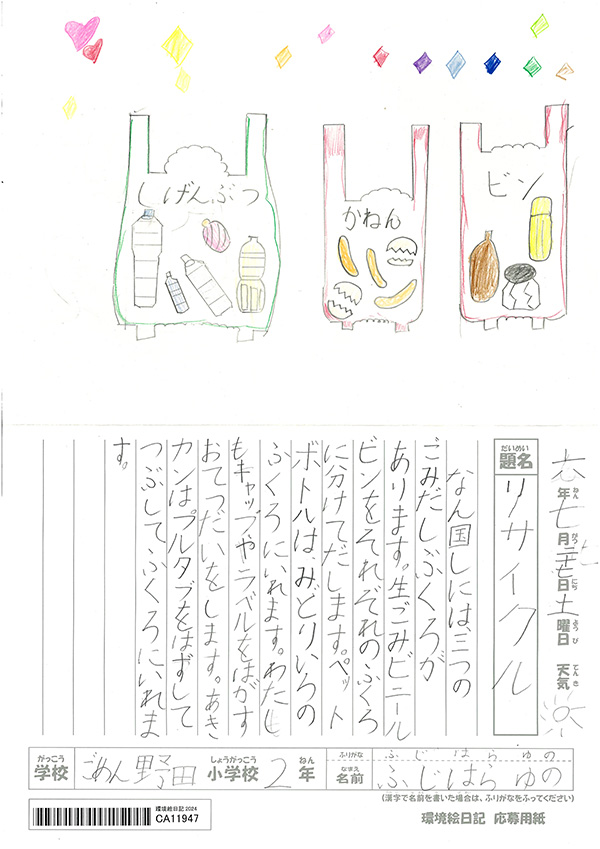 しげんぶつ
かねん
ビン
六年七月日土曜日 天気
ねん がつ にち ようび てんき
だいめい
題名 リサイクル
なん国しには、三つの
ごみだしぶくろが
あります。生ごみビニール
ビンをそれぞれのふくろ
に分けてだします。ペット
ボトルは、みどりいろの
ふくろにいれます。わたし
もキャップやラベルをはがす
おてつだいをします。あき
カンはプルタブをはずして
つぶしてふくろにいれま
す。
がっこう しょうがっこう ねん
学校 ごめん野田 小学校 2年
ふりがな ふじはらゆの
なまえ
名前 ふじはら ゆの
(漢字で名前を書いた場合は、ふりがなをふってください)
環境絵日記2024
CA11947
環境絵日記 応募用紙